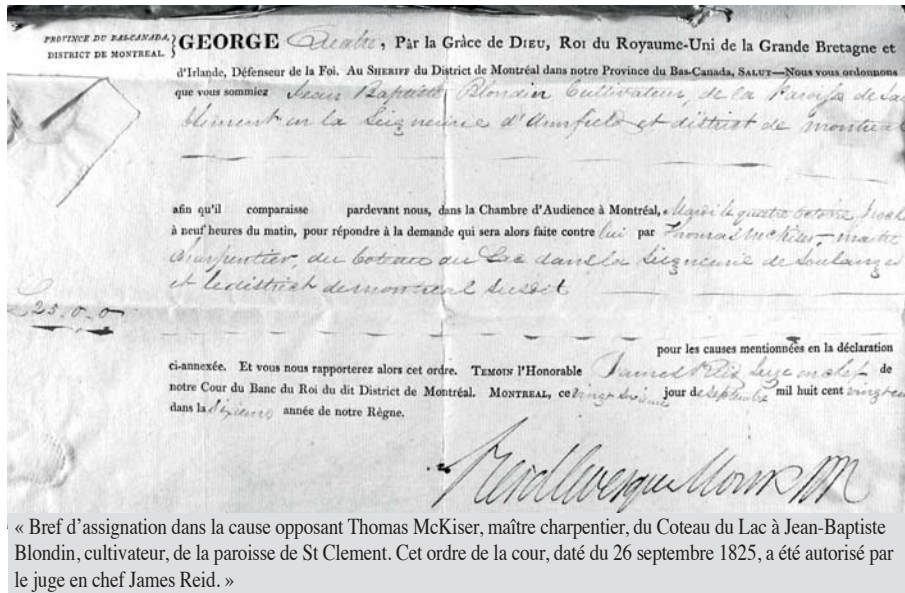 PROVINCE DU BAS-CANADA,
DISTRICT DE MONTREAL.
GEORGE Quatre, Par la Grâce de DIEU, ROI du Royaume-Uni de la Grande Bretagne et
d'Irlande, Défenseur de la Foi. Au SHERIFF du District de Montréal dans notre Province du Bas-Canada, SALUT—Nous vous ordonnons
que vous sommiez Jean Baptiste Blondin Cultivateur, de la Paroisse de
Clement en la Seigneurie d' et district de Montreal
afin qu'il comparaisse pardevant nous, dans la Chambre d'Audience à Montréal, Mardi le quatre Octobre
à neuf heures du matin, pour répondre à la demande qui sera alors faite contre lui par Thomas McKiser, maitre
Charpentier, du Coteau du Lac dans la Seigneurie de Soulanges
et le district de montreal susdit
£25.0.0
pour les causes mentionnées en la déclaration
ci-annexée. Et vous nous rapporterez alors cet ordre. TEMOIN l'Honorable James Reid Juge en chef de
notre Cour du Banc du Roi du dit District de Montréal. MONTREAL, ce vingt sixieme jour de septembre mil huit cent
dans la sixieme année de notre Règne.
« Bref d'assignation dans la cause opposant Thomas McKiser, maître charpentier, du Coteau du Lac à Jean-Baptiste
Blondin, cultivateur, de la paroisse de St Clement. Cet ordre de la cour, daté du 26 septembre 1825, a été autorisé par
le juge en chef James Reid. »